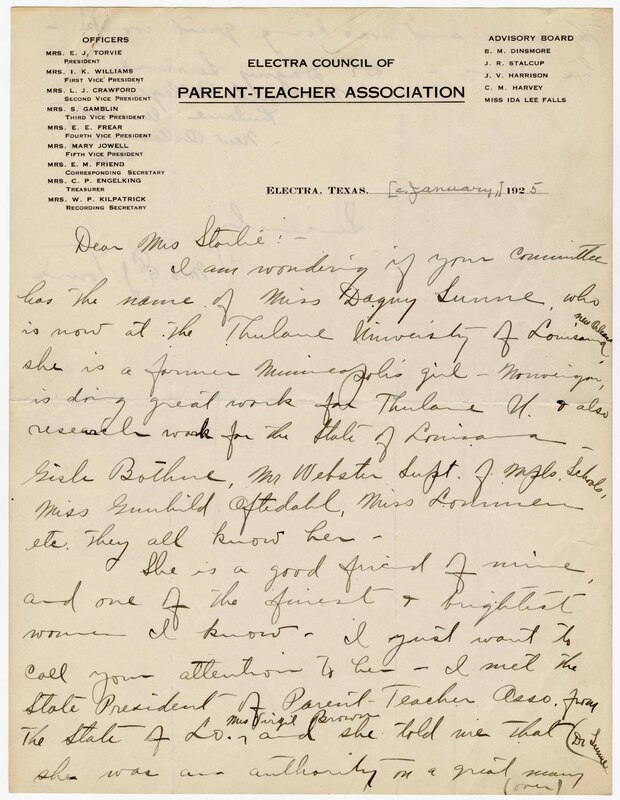 OFFICERS
MRS. E. J. TORVIE
PRESIDENT
MRS. I. K. WILLIAMS
FIRST VICE PRESIDENT
MRS. L. J. CRAWFORD
SECOND VICE PRESIDENT
MRS. S. GAMBLIN
THIRD VICE PRESIDENT
MRS. E. E. FREAR
FOURTH VICE PRESIDENT
MRS. MARY JOWELL
FIFTH VICE PRESIDENT
MRS. E. M. FRIEND
CORRESPONDING SECRETARY
MRS. C. P. ENGELKING
TREASURER
MRS. W. P. KILPATRICK
RECORDING SECRETARY
ELECTRA COUNCIL OF
PARENT-TEACHER ASSOCIATION
ADVISORY BOARD
B. M. DINSMORE
J. R. STALCUP
J. V. HARRISON
C. M. HARVEY
MISS IDA LEE FALLS
ELECTRA, TEXAS. [c. January,] 1925
Dear Mrs Storlie!-
I am wondering if your committee
has the name of Miss Dagny Sunne, who
is now at the Thulane University of Louisiana, New Orleans
she is a former Minneapolis girl - Norweigan,
is doing great work for Thulane U. & also
research work for the State of Louisana -
Gisle Bothne, Mr Webster Supt. of Mpls. Schools,
Miss Gunhild Oftedahl, Miss Lommen
etc. they all know her -
She is a good friend of mine,
and one of the finest & brightest
women I know - I just want to
call your attention to her - I met the
State President of Parent-Teacher Asso. from
the State of Lo., Mrs Virgil Brown and she told me that (Dr Sunne)
she was an authority on a great many
(over)